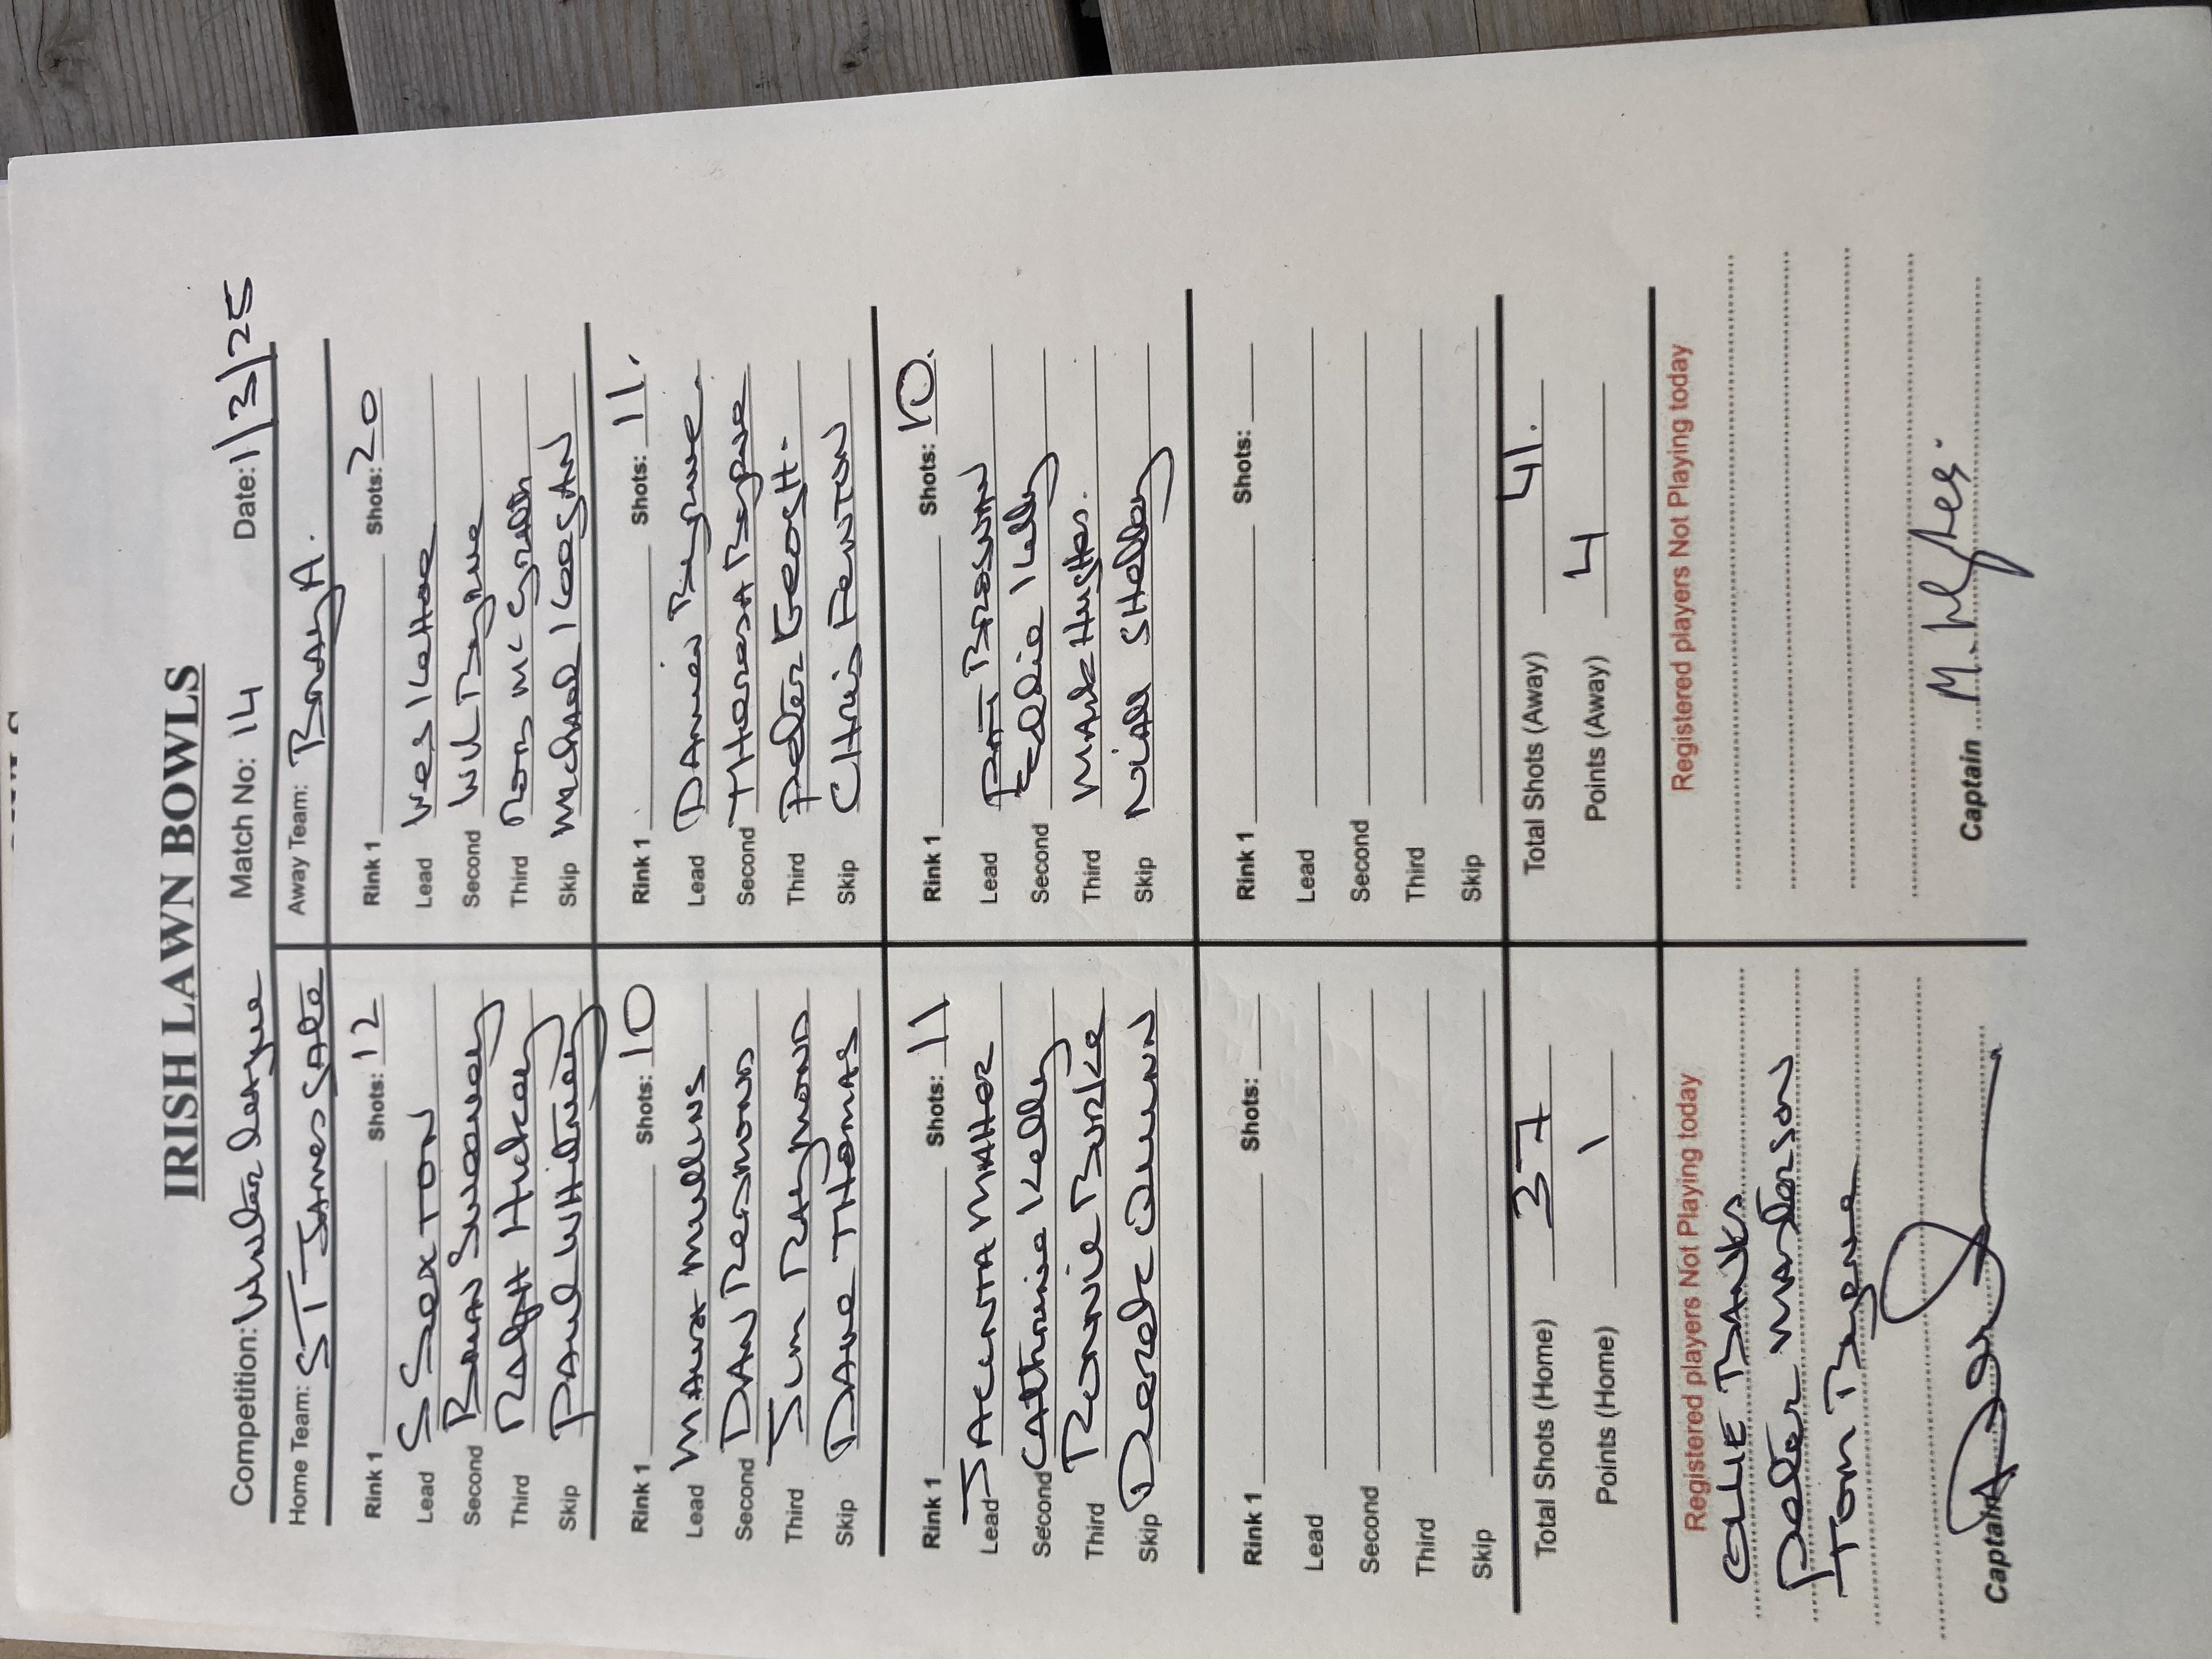 IRISH LAWN BOWLS
Competition: Winter league Match No: 14 Date: 1/3/25
Home Team: ST JAMES GATE Away Team: Bray A.
Rink 1 Shots: 12 Rink 1 Shots: 20
Lead S SEXTON Lead Wes Kehoe
Second Brian Sweeney Second Byrne
Third Ralph Hickey Third McGrath
Skip Paul Whitney Skip Michael Keegan
Rink 1 Shots: 10 Rink 1 Shots: 11.
Lead Maura Mullins Lead Damien Byrne
Second DAN REDMOND Second THERESA Byrne
Third Jim RAYMOND Third Peter
Skip DAVE THOMAS Skip CHRIS FENTON
Rink 1 Shots: 11 Rink 1 Shots: 10.
Lead JACENTA MAHER Lead BROSNAN
Second Catherine Kelly Second Eddie Kelly
Third Ronnie Burke Third Mark Hughes.
Skip Derek Quinn Skip Niall Shelley
Rink 1 Shots: Rink 1 Shots:
Lead Lead
Second Second
Third Third
Skip Skip
Total Shots (Home) 37 Total Shots (Away) 41.
Points (Home) 1 Points (Away) 4
Registered players Not Playing today Registered players Not Playing today
OLLIE BANKS
Peter Masterson
Tom Byrne
Captain Captain M.